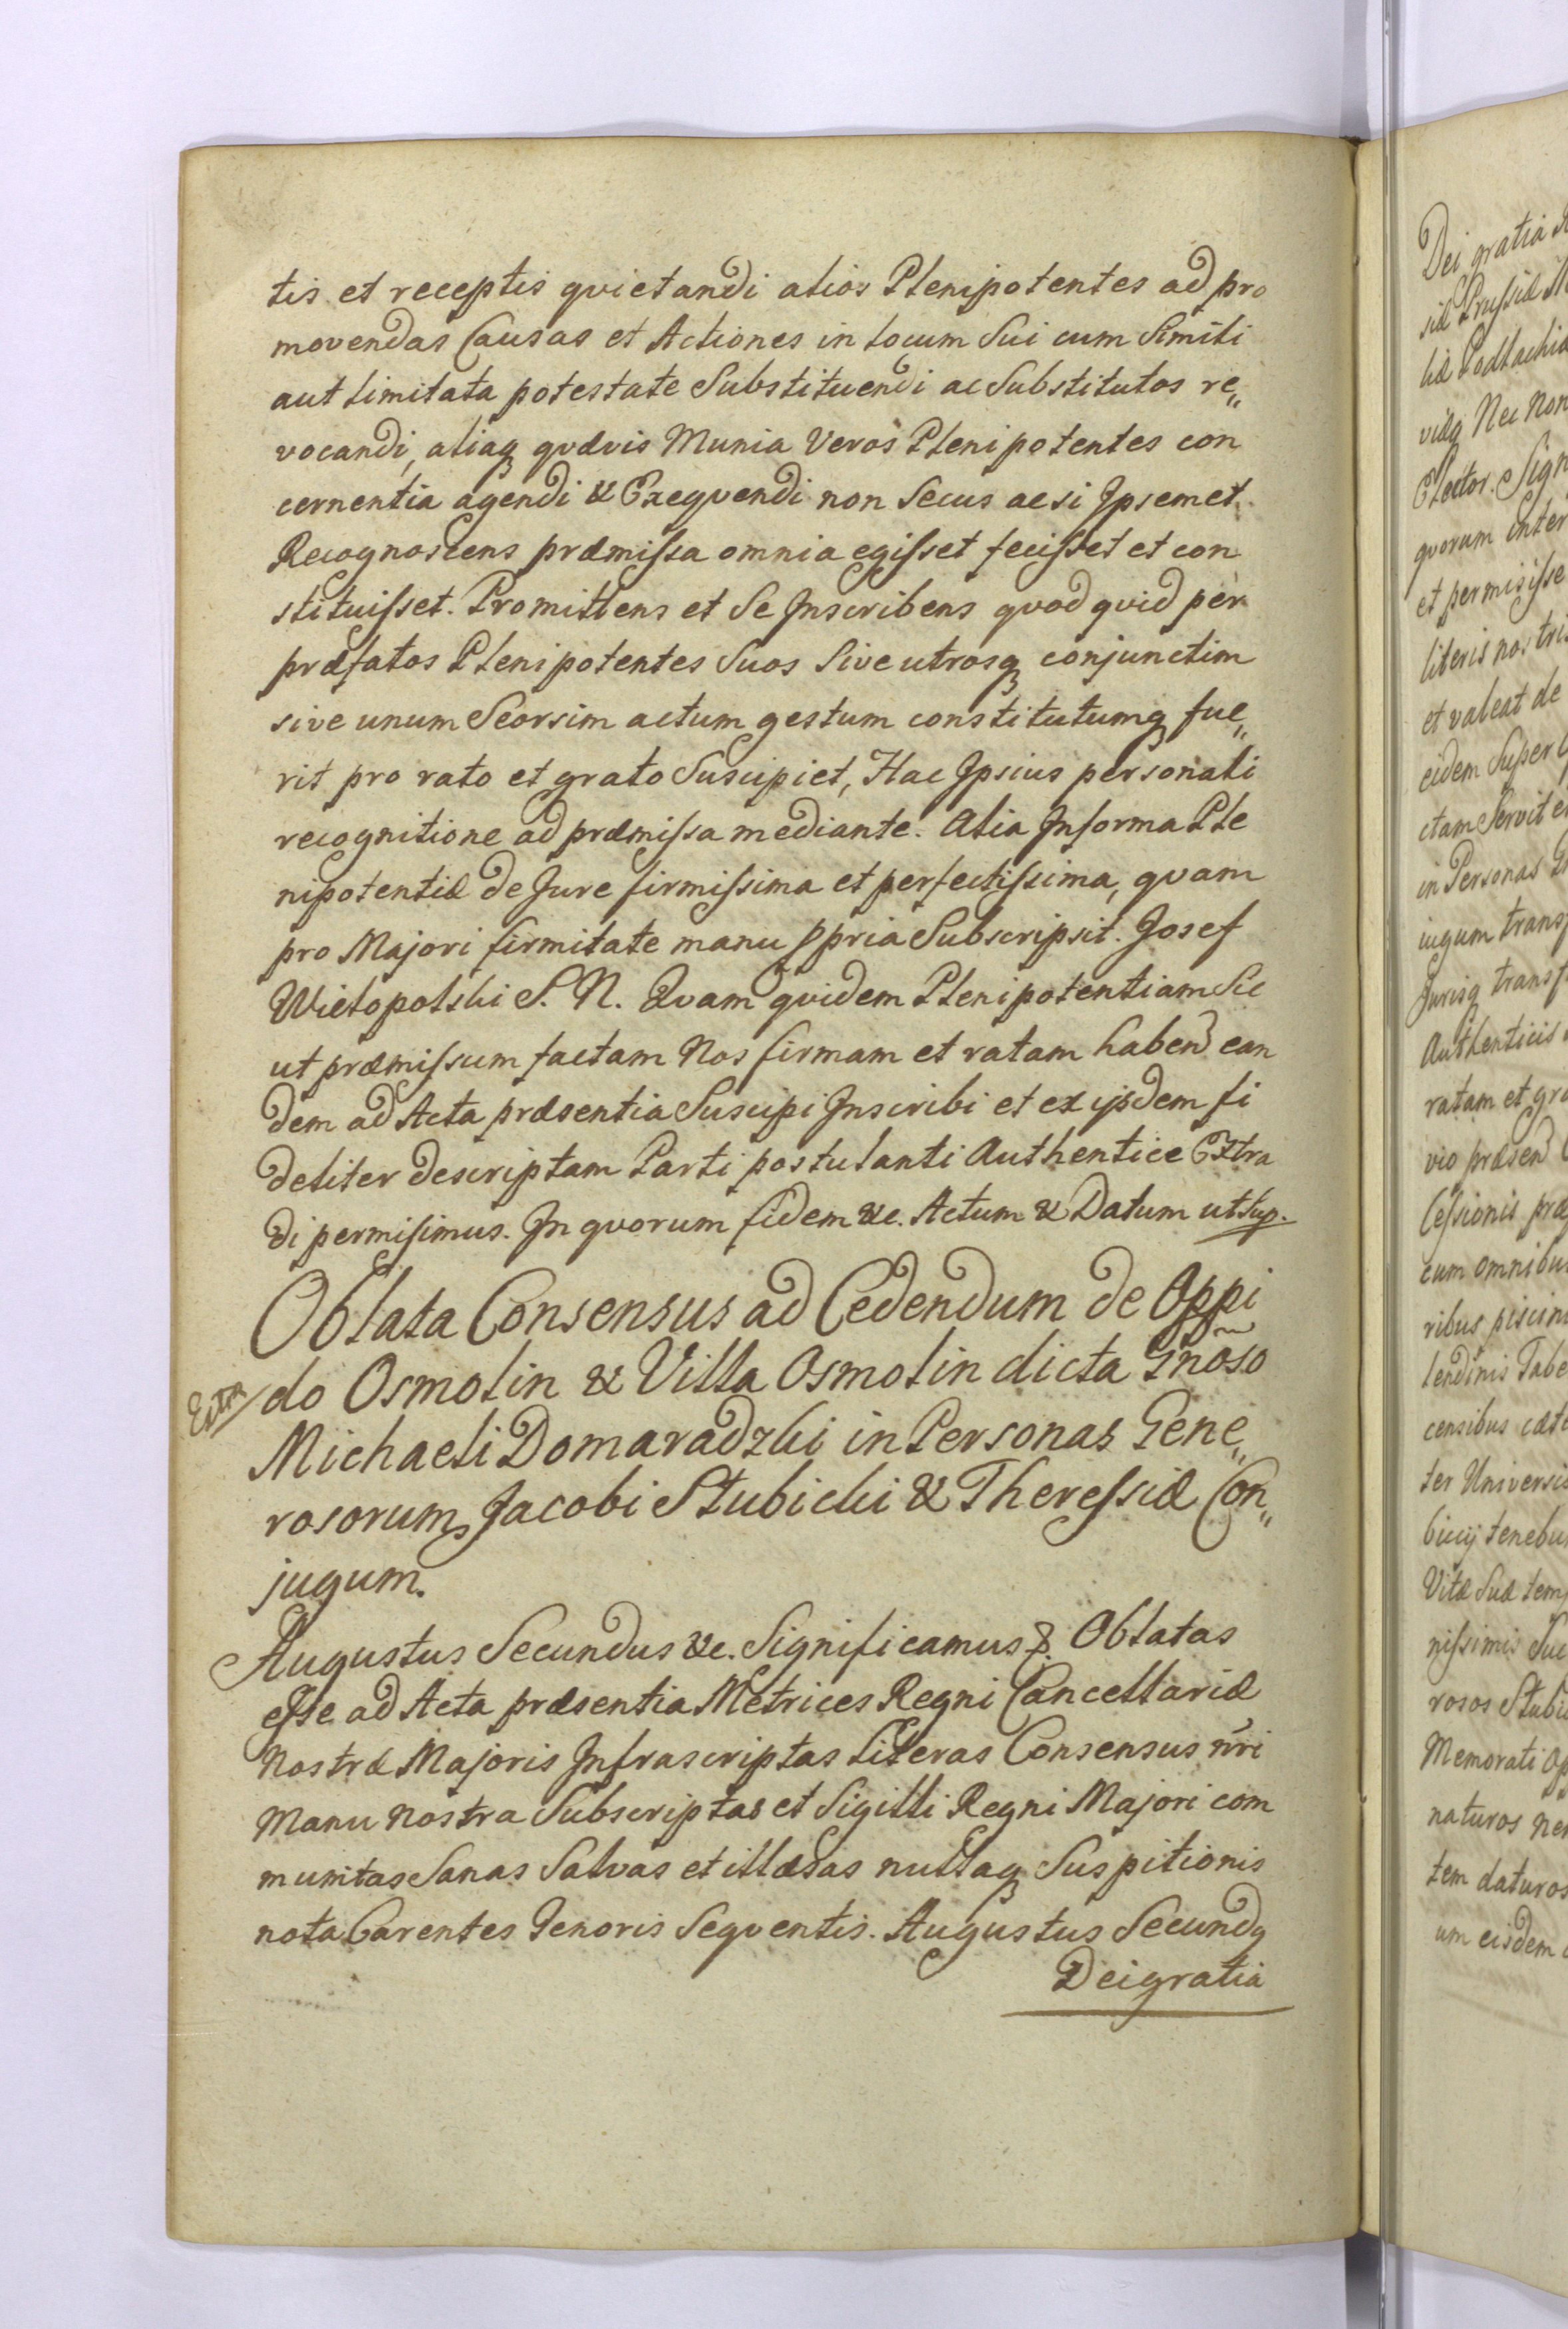 tis et receptis qvietandi alios Plenipotentes ad pro
movendas Causas et Actiones in locum Sui cum Simili
aut limitata potestate Substituendi ac Substitutos re„
vocandi, aliaq qvævis Munia Veros Plenipotentes con
cernentia agendi & Exeqvendi non Secus ac si Ipsemet
Recognoscens præmissa omnia egisset fecisset et con
stituisset. Promittens et Se Inscribens qvod qvid per
præfatos Plenipotentes Suos Sive utrosq conjunctim
sive unum Seorsim actum gestum constitutumq fue„
rit pro rato et grato Suscipiet, Hac Ipsius personali
recognitione ad præmissa mediante. Alia Informa Ple
nipotentiæ de Jure firmissima et perfectissima, qvam
pro Majori firmitate manu ppria Subscripsit. Josef
Wielopolski S. N. Qvam qvidem Plenipotentiam Sic
ut præmissum factam Nos firmam et ratam haben ean
dem ad Acta præsentia Suscipi Inscribi et ex ijsdem fi
deliter descriptam Parti postulanti Authentice Extra
di permisimus. In qvorum fidem &c. Actum & Datum ut Sup.
Oblata Consensus ad Cedendum de Oppi
do Osmolin & Villa Osmolin dicta Gnoso
Extra
Michaeli Domaradzki in Personas Gene„
rosorum Jacobi Stubicki & Theressiæ Con„
jugum.
Augustus Secundus &c. Significamus &. Oblatas
esse ad Acta præsentia Metrices Regni Cancellariæ
Nostræ Majoris Infrascriptas Literas Consensus nri
Manu Nostra Subscriptas et Sigilli Regni Majori com
munitas Sanas Salvas et illæsas nullaq Suspitionis
nota Carentes Tenoris Seqventis. Augustus Secundq
Dei gratia
Dei gratia
siæ Prussiæ
liæ Podlachiæ
viæq Nec Non
Elector. Sign
qvorum inter
et permisisse
literis nostris
et valeat de
eidem Super
ctam Servit
in Personas
iugum trans
Jurisq transf
Authenticis
ratam et gra
vio præsen
Cessionis præ
cum omnibus
ribus piscin
lendinis Tabe
censibus cæte
ter Universi
bicij tenebu
Vitæ Suæ tem
nissimis Suc
rosos Stubi
Memorati Op
naturos ne
tem daturos
um eisdem